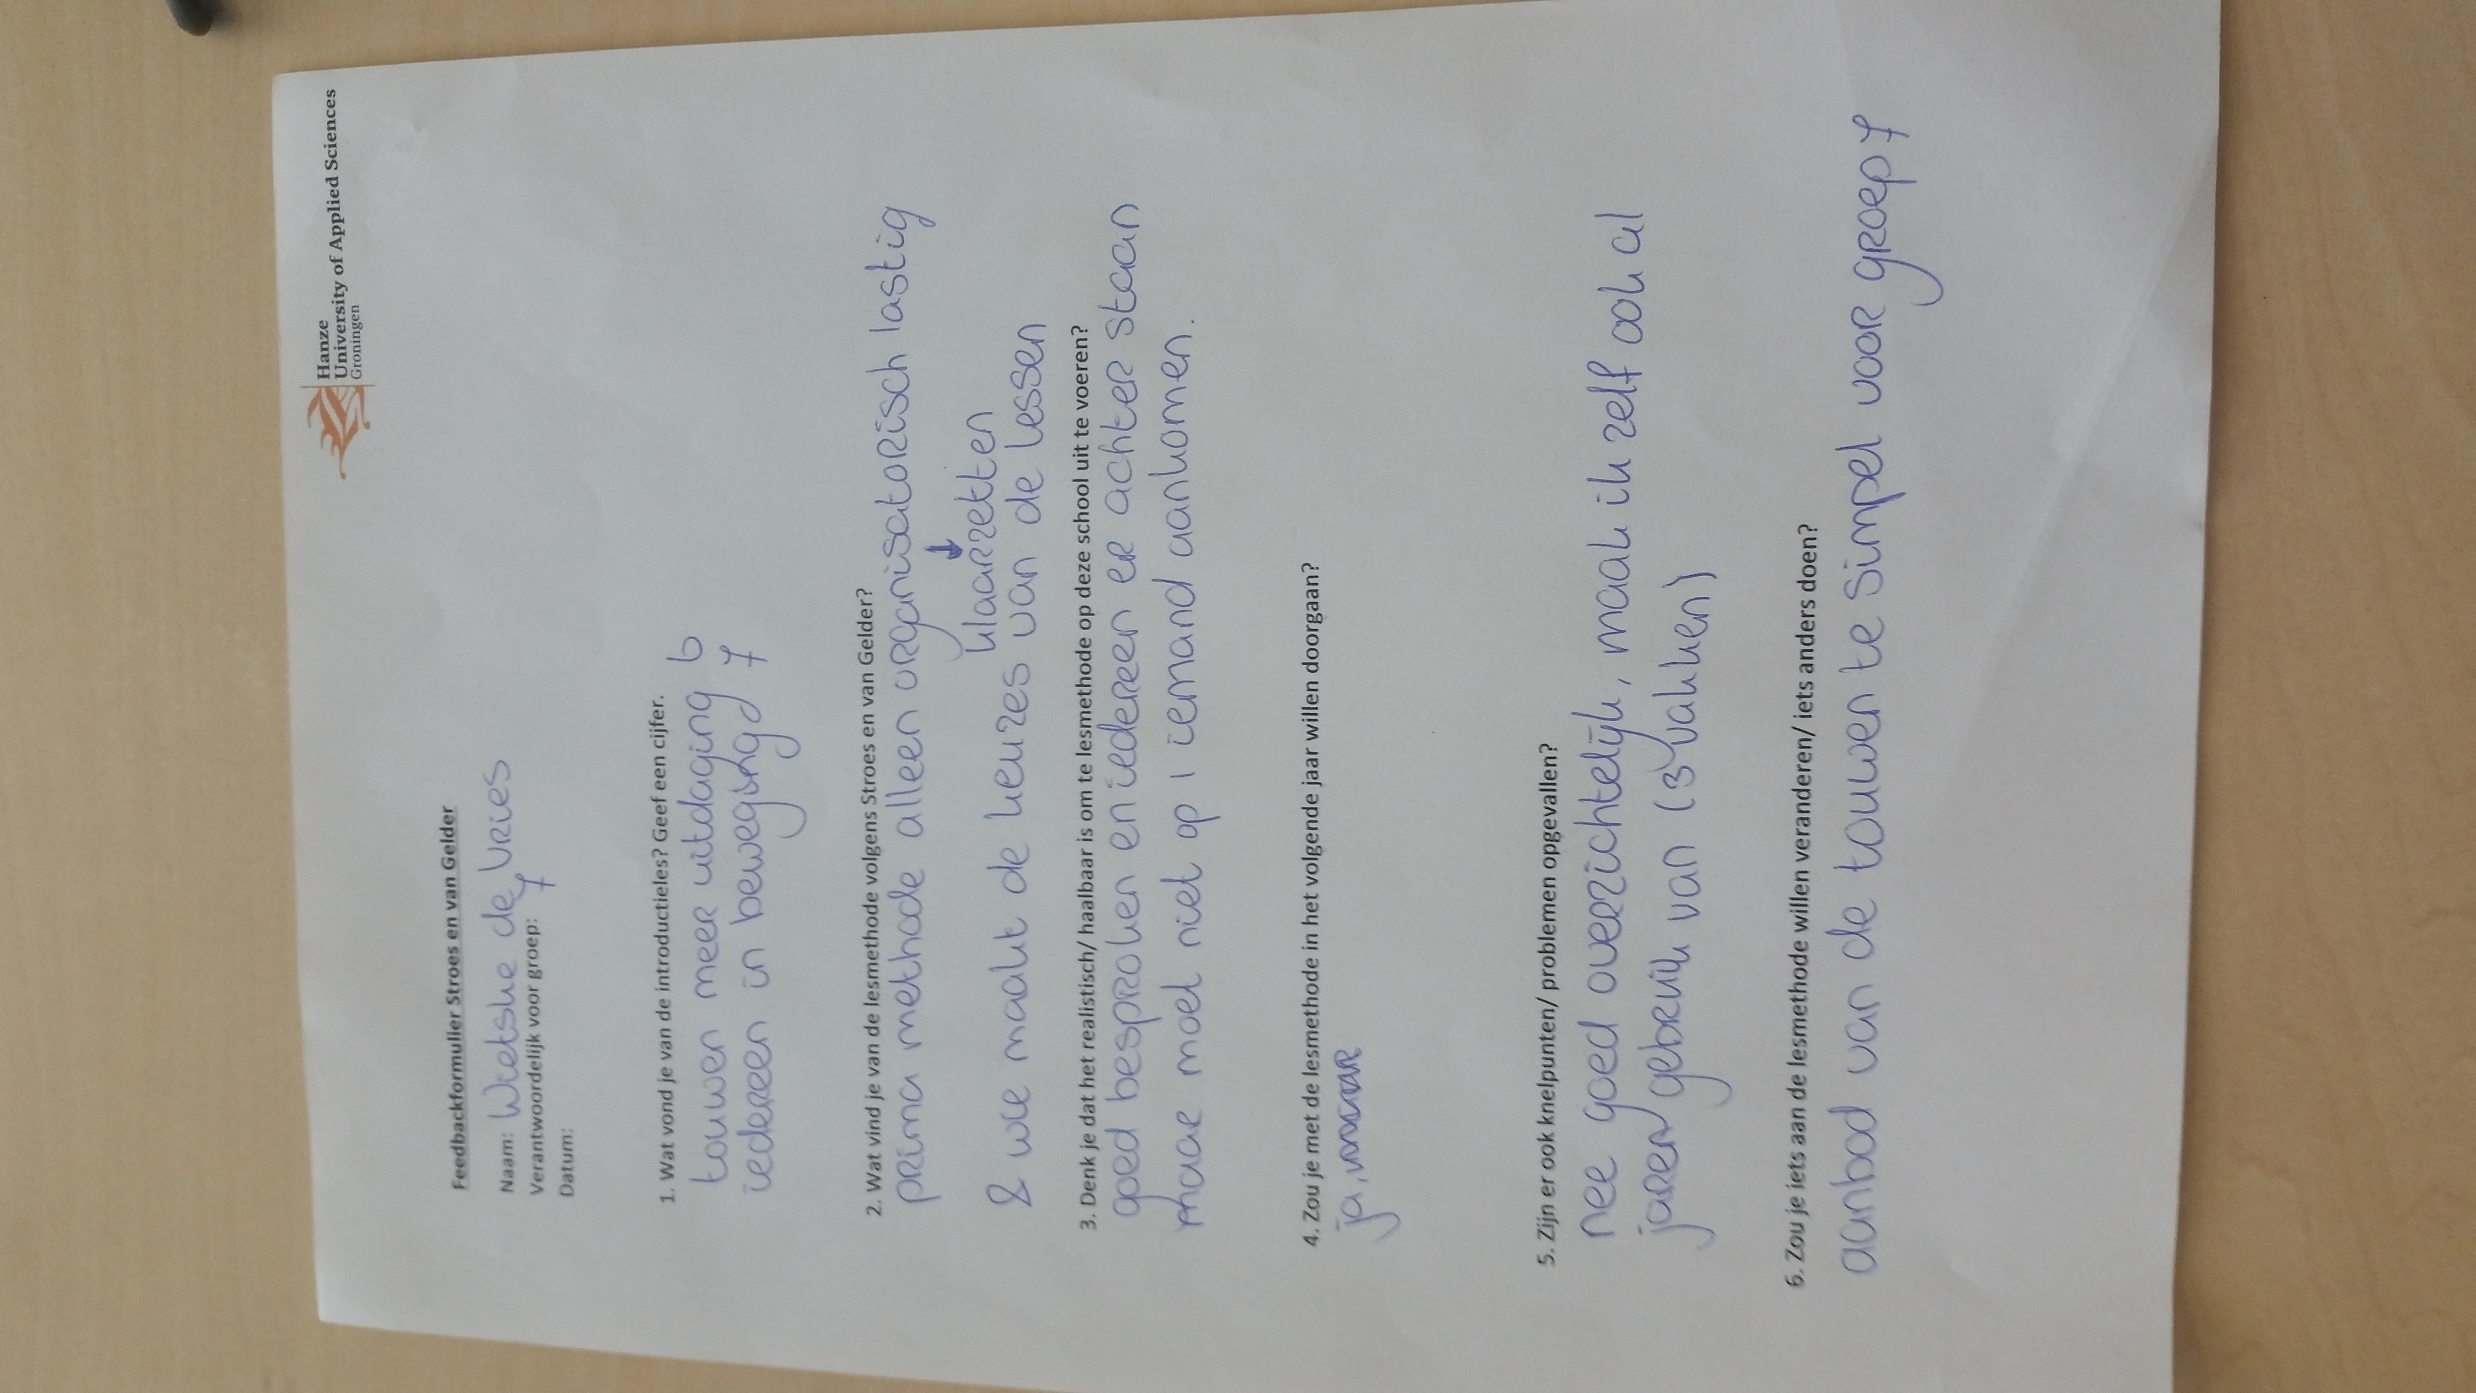 Hanze
University of Applied Sciences
Groningen
Feedbackformulier Stroes en van Gelder
Naam: Wietske de Vries
Verantwoordelijk voor groep: 7
Datum:
1. Wat vond je van de introductieles? Geef een cijfer.
touwen meer uitdaging 6
iedereen in beweging 7
2. Wat vind je van de lesmethode volgens Stroes en van Gelder?
prima methode alleen organisatorisch lastig
↓
klaarzetten
& wie maakt de keuzes van de lessen
3. Denk je dat het realistisch/ haalbaar is om te lesmethode op deze school uit te voeren?
goed besproken en iedereen er achter staan
maar moet niet op 1 iemand aankomen.
4. Zou je met de lesmethode in het volgende jaar willen doorgaan?
ja,
5. Zijn er ook knelpunten/ problemen opgevallen?
nee goed overzichtelijk, maak ik zelf ook al
jaren gebruik van (3 vakken)
6. Zou je iets aan de lesmethode willen veranderen/ iets anders doen?
aanbod van de touwen te simpel voor groep 7